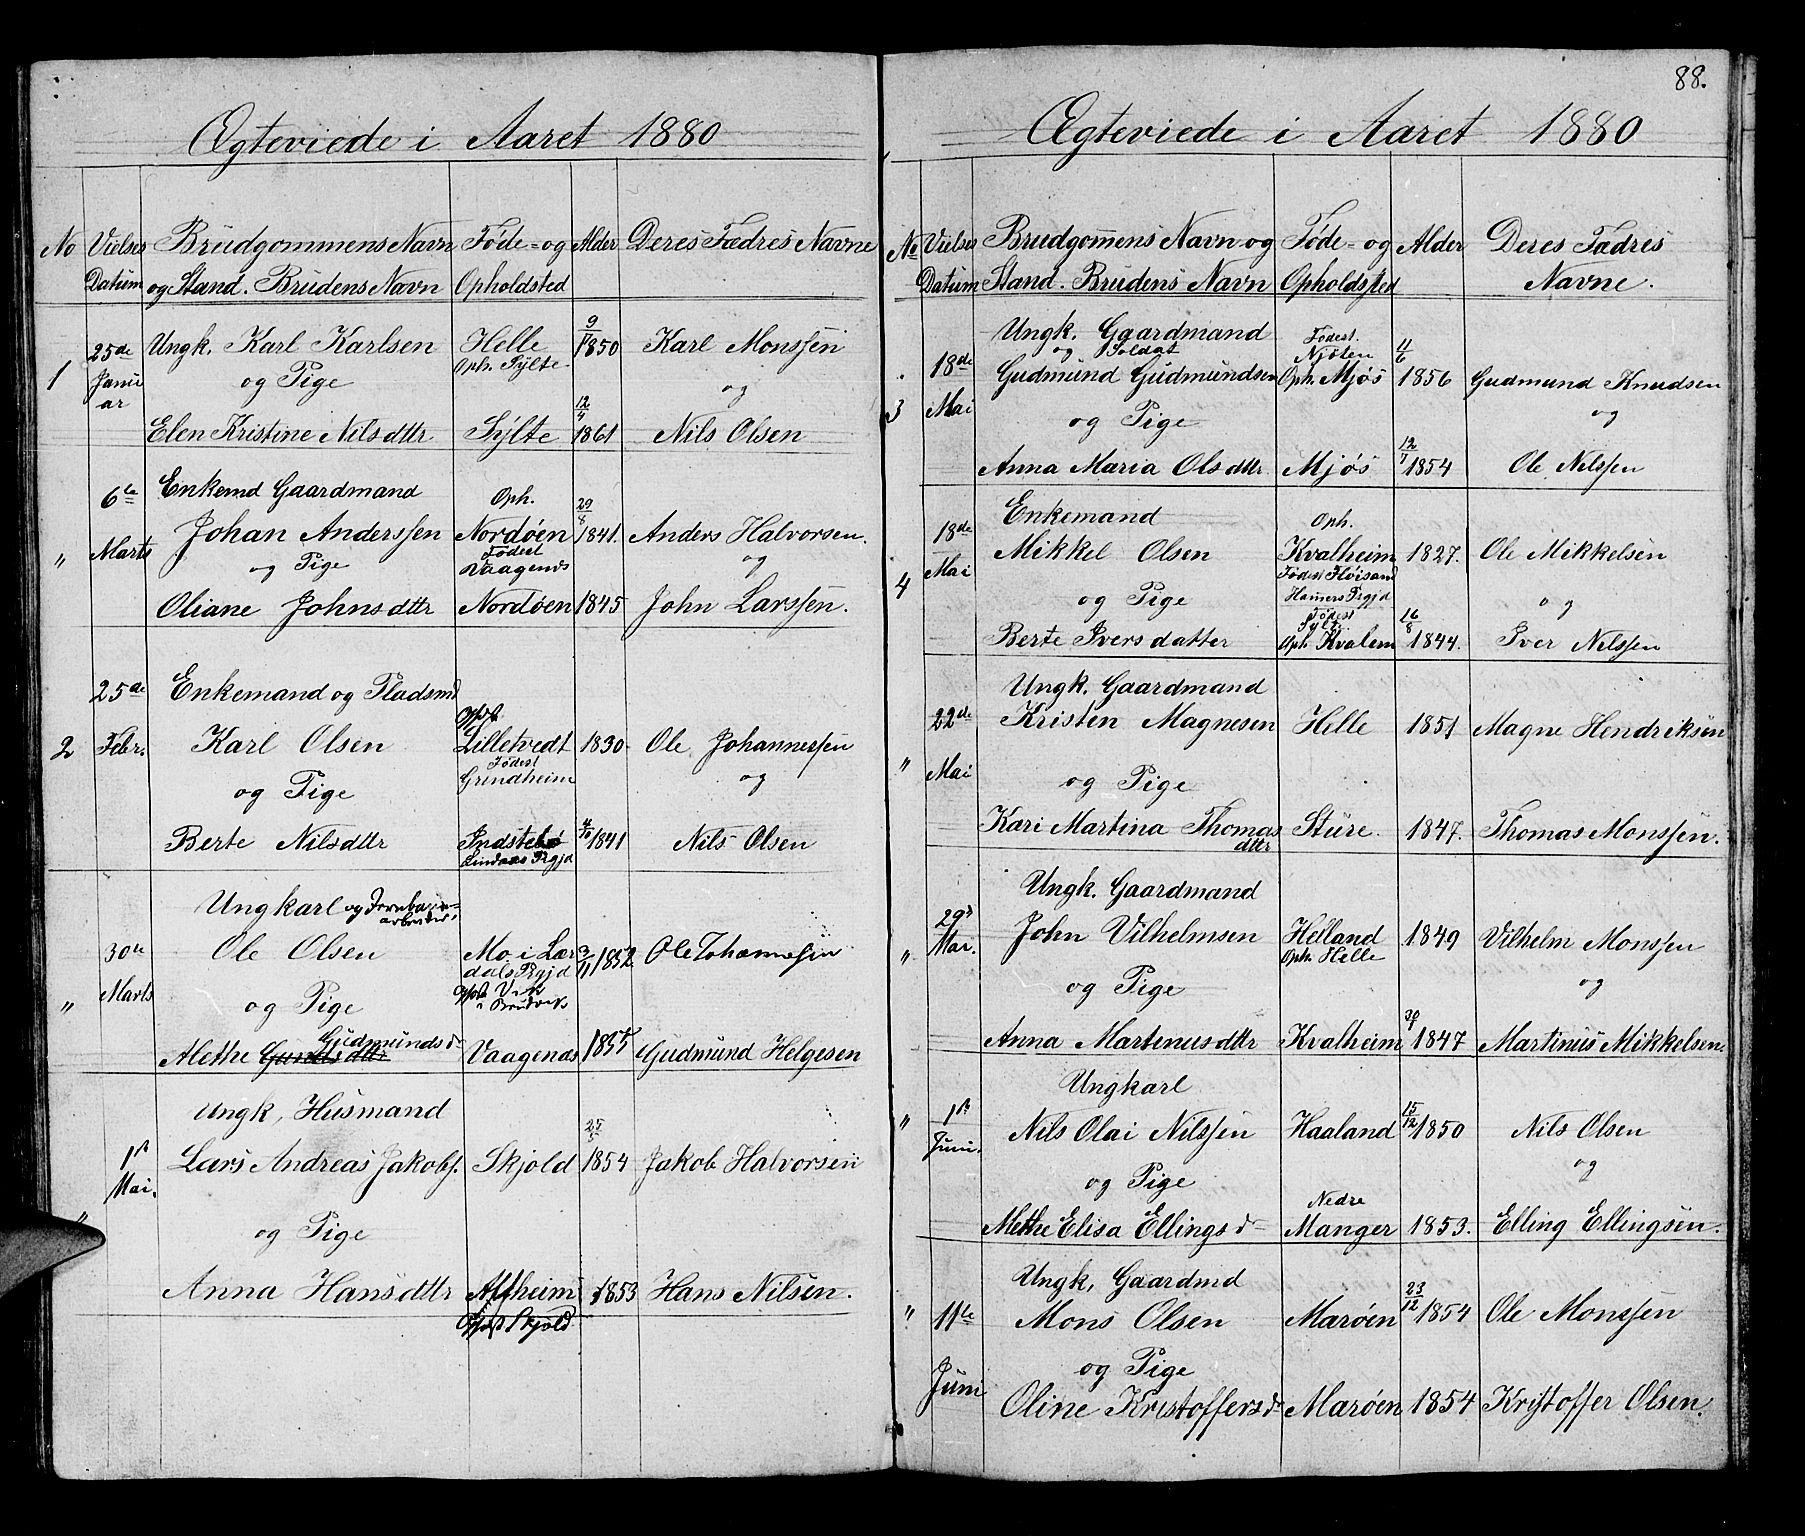 Ægteviede i Aaret 1880
No Vielses Brudgommens Navn Føde- og Alder Deres Fædres Navne
Datum og Stand. Brudens Navn Opholdsted
1 25de Ungk. Karl Karlsen Helle 9/1 1850 Karl Monssen
Janu Oph. Sylte
ar og Pige og
Elen Kristine Nilsdttr Sylte 12/4 1861 Nils Olsen
6te Enkemd Gaardmand Oph.
Johan Anderssen Nordøen 29/8 1841. Anders Halvorsen.
" Marts og Pige Fødest Vaagenes og
Oliane Johnsdttr Nordøen 1845 John Larssen.
25de Enkemand og Pladsmd
2 Febr. Karl Olsen Lilletvedt 1830 Ole Johannessen
Fødest
og Pige Grindheim og
Berte Nilsdttr Indstebø 4/10 1841 Nils Olsen
Lindaas Prgjd
Ungkarl og Jernbane-
arbeider.
30te Ole Olsen Mo i Lær 3/11 1852 Ole Johannesen
dals Prgjd
" Marts og Pige Vik
i Bruvik
Gudmundsd
Alethe Vaagenes 1855 Gudmund Helgesen
Ungk, Husmand
1st Lars Andreas Jakobs. Skjold 25/5 1854 Jakob Halvorsen
Mai.
" og Pige
Anna Hansdttr Alfheim 1853 Hans Nilsen.
Skjold
88.
Ægteviede i Aaret 1880
No Vielses Brudgommens Navn og Føde- og Alder Deres Fædres
Datum Stand. Brudens Navn Opholdsted Navne.
Ungk. Gaardmand Fødest.
og Soldat Njøten
18de Gudmund Gudmundsen Oph. Mjøs 11/6 1856 Gudmund Knudsen
3 Mai og Pige og
Anna Maria Olsdttr Mjøs 12/7 1854 Ole Nilssen
Enkemand Oph.
18de Mikkel Olsen Kvalheim 1827. Ole Mikkelsen
4 Mai Fødest Fløisand
og Pige Hamers Prgjd og
Fødest
Sylte
Berte Iversdatter Oph. Kvalem 16/8 1844. Iver Nilssen
Ungk. Gaardmand
22de Kristen Magnesen Helle 1851 Magne Hendriksen
" Mai og Pige
Kari Martina Thomas Sture. 1847. Thomas Monssen.
dttr
Ungk. Gaardmand
29d John Vilhelmsen Helland 1849 Vilhelm Monssen
" Mai. Oph. Helle
og Pige og
Anna Martinusdttr Kvalheim 1847 Martinus Mikkelsen.
Ungkarl
" 1st Nils Olai Nilssen Haaland 15/12 1850 Nils Olsen
Juni. og Pige og
Nedre
Methe Elisa Ellingsd Manger 1853. Elling Ellingsen.
Ungk, Gaardmd
" 11te Mons Olsen Marøen 23/12 1854 Ole Monssen
og Pige
Juni Oline Kristoffersd Marøen 1854 Kristoffer Olsen.